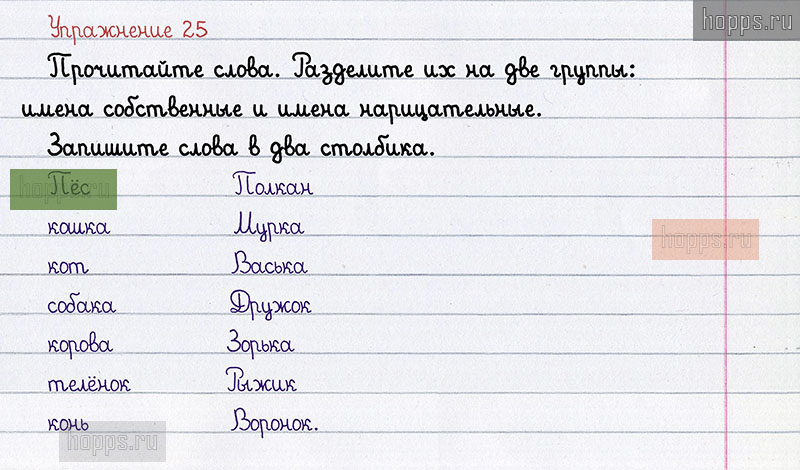 hopps.ru
Упражнение 25
Прочитайте слова. Разделите их на две группы:
имена собственные и имена нарицательные.
Запишите слова в два столбика.
Пёс Полкан
hopps.ru
кошка Мурка
hopps.ru
кот Васька
собака Дружок
корова Зорька
телёнок Рыжик
конь Воронок.
hopps.ru